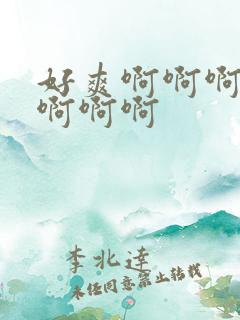 好爽啊啊啊
啊啊啊
李北达
未经同意禁止转载